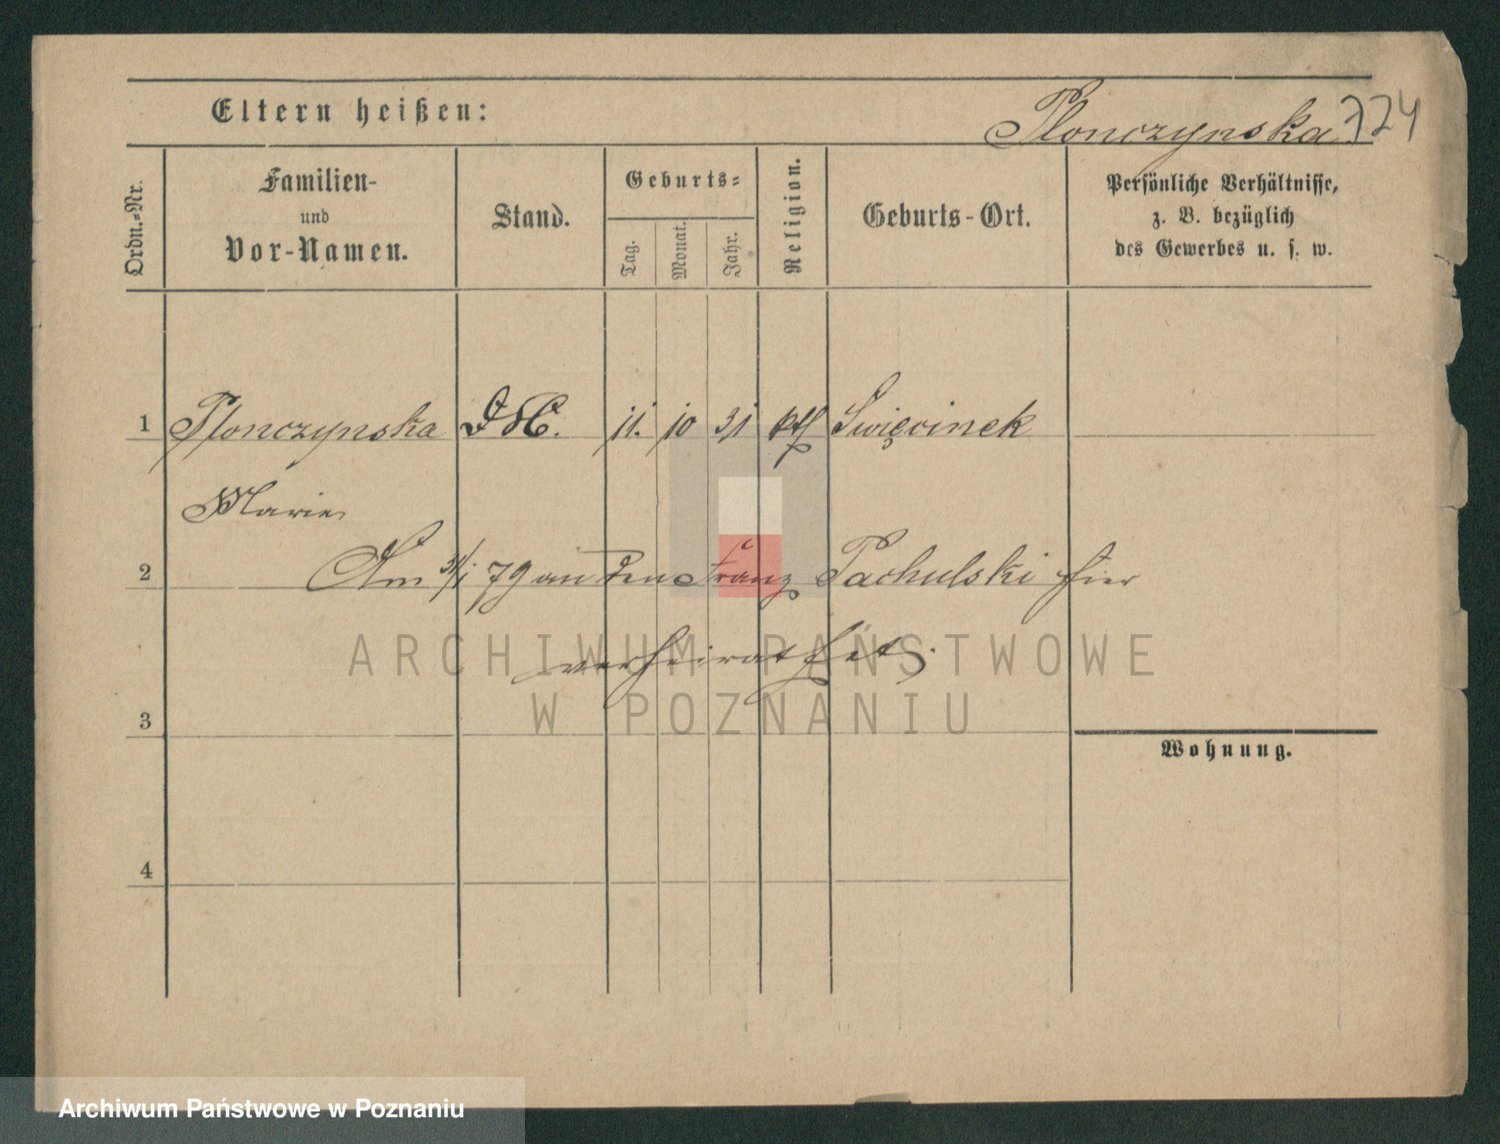 Eltern heißen:
Plonczynska
724
Ordn.-Nr.
Familien-
und
Vor-Namen.
Stand.
Geburts-
Tag.
Monat.
Jahr.
Religion.
Geburts-Ort.
Persönliche Verhältnisse,
z. B. bezüglich
des Gewerbes u. s. w.
1 Plonczynska 11. 10 31 kth Swięcinek
Marie
2 Am 31/1 79 an den Franz Pachulski hier
verheirathet.
3
Wohnung.
4
ARCHIWUM PAŃSTWOWE
W POZNANIU
Archiwum Państwowe w Poznaniu